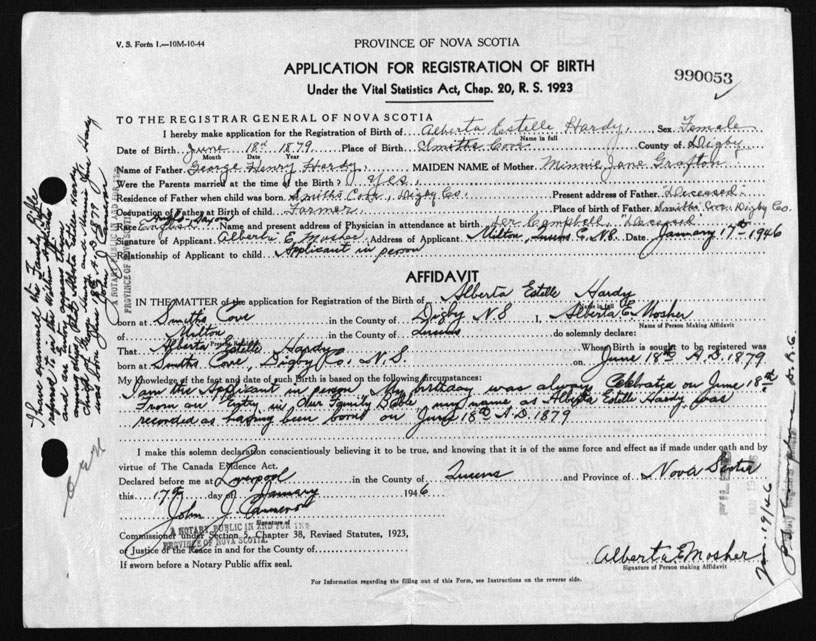 V. S. Form 1.—10M-10-44
PROVINCE OF NOVA SCOTIA
APPLICATION FOR REGISTRATION OF BIRTH
990053
Under the Vital Statistics Act, Chap. 20, R. S. 1923
TO THE REGISTRAR GENERAL OF NOVA SCOTIA
I hereby make application for the Registration of Birth of Alberta Estelle Hardy, Sex Female
Name in full
Date of Birth June 18th 1879 Place of Birth Smiths Cove County of Digby
Month Date Year
Name of Father George Henry Hardy MAIDEN NAME of Mother Minnie Jane Grafton
Were the Parents married at the time of the Birth? Yes
Residence of Father when child was born Smiths Cove, Digby Co. Present address of Father "Deceased"
Occupation of Father at Birth of child Farmer Place of birth of Father Smiths Cove Digby Co.
Race English Name and present address of Physician in attendance at birth Campbell, "Deceased"
Signature of Applicant Alberta E. Mosher Address of Applicant Milton, Queens Co. N.S. Date January 17th 1946
Relationship of Applicant to child Applicant in person
AFFIDAVIT
IN THE MATTER of the application for Registration of the Birth of Alberta Estelle Hardy
Name in full
born at Smiths Cove in the County of Digby N S I, Alberta E. Mosher
Name of Person Making Affidavit
of Milton in the County of Queens do solemnly declare:
That Alberta Estelle Hardy Whose Birth is sought to be registered was
born at Smiths Cove, Digby Co., N.S. on June 18th A.D. 1879
My Knowledge of the fact and date of such Birth is based on the following circumstances:
I am the Applicant in person. My birthday was always Celebrated on June 18th
From an "Entry in Our Family Bible" my name as Alberta Estelle Hardy was
recorded as having been born on June 18th A.D. 1879
I make this solemn declaration conscientiously believing it to be true, and knowing that it is of the same force and effect as if made under oath and by
virtue of The Canada Evidence Act.
Declared before me at Liverpool in the County of Queens and Province of Nova Scotia
this 17th day of January 1946
John J. Cameron
Signature of
A NOTARY PUBLIC IN AND FOR THE
PROVINCE OF NOVA SCOTIA.
Commissioner under Section 5, Chapter 38, Revised Statutes, 1923,
or Justice of the Peace in and for the County of
If sworn before a Notary Public affix seal.
Alberta E Mosher
Signature of Person making Affidavit
For Information regarding the filling out of this Form, see Instructions on the reverse side.
I have examined the Family Bible
referred to in the
and
child of George Henry and Minnie Jane Hardy
was born June 18th A.D. 1879
John J. Cameron
A NOTARY PUBLIC IN AND FOR THE
PROVINCE OF NOVA SCOTIA
FILED